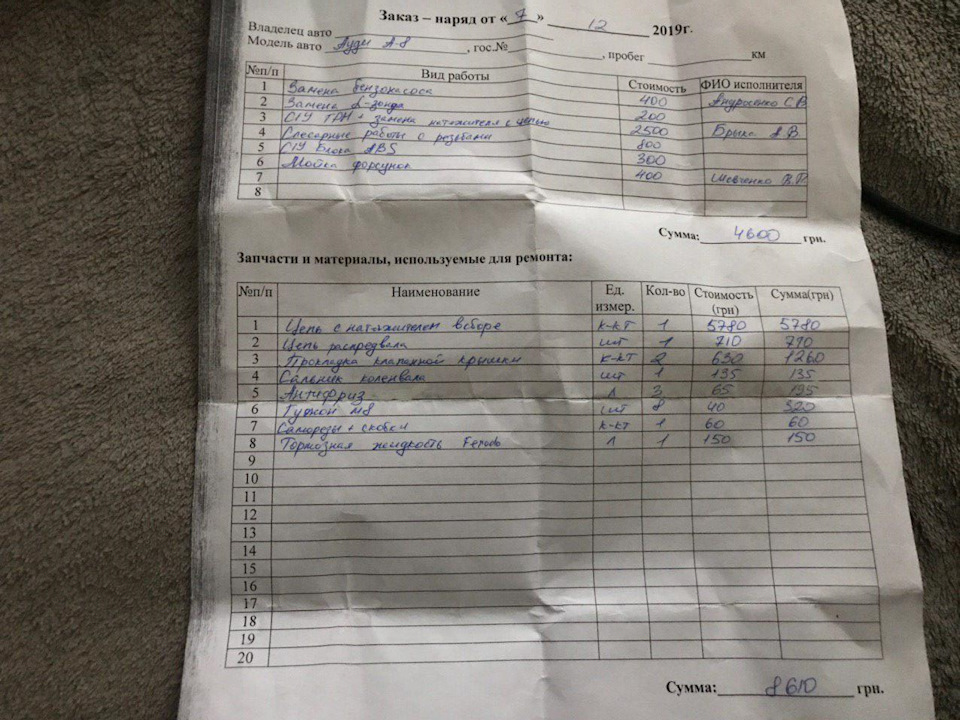 Заказ – наряд от « 7 » 12 2019г.
Владелец авто
Модель авто Ауди А-8 , гос.№ , пробег км
№п/п Вид работы Стоимость ФИО исполнителя
1 Замена бензонасоса 400 Андросенко С.В.
2 Замена L-зонда 200
3 С/У ГРМ + замена натяжителя с цепью 2500 Брыка А.В.
4 Слесарные работы с резьбами 800
5 С/У блока ABS 300
6 Мойка форсунок 400 Шевченко В.Р.
7
8
Сумма: 4600 грн.
Запчасти и материалы, используемые для ремонта:
№п/п Наименование Ед. измер. Кол-во Стоимость (грн) Сумма(грн)
1 Цепь с натяжителем в сборе к-кт 1 5780 5780
2 Цепь распредвала шт 1 710 710
3 Прокладка клапанной крышки к-кт 2 630 1260
4 Сальник коленвала шт 1 135 135
5 Антифриз л 3 65 195
6 Гужон М8 шт 8 40 320
7 Саморезы + скобки к-кт 1 60 60
8 Тормозная жидкость Ferodo л 1 150 150
9
10
11
12
13
14
15
16
17
18
19
20
Сумма: 8610 грн.